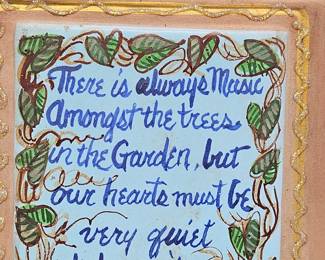 There is always Music
Amongst the trees
in the Garden, but
our hearts must be
very quiet